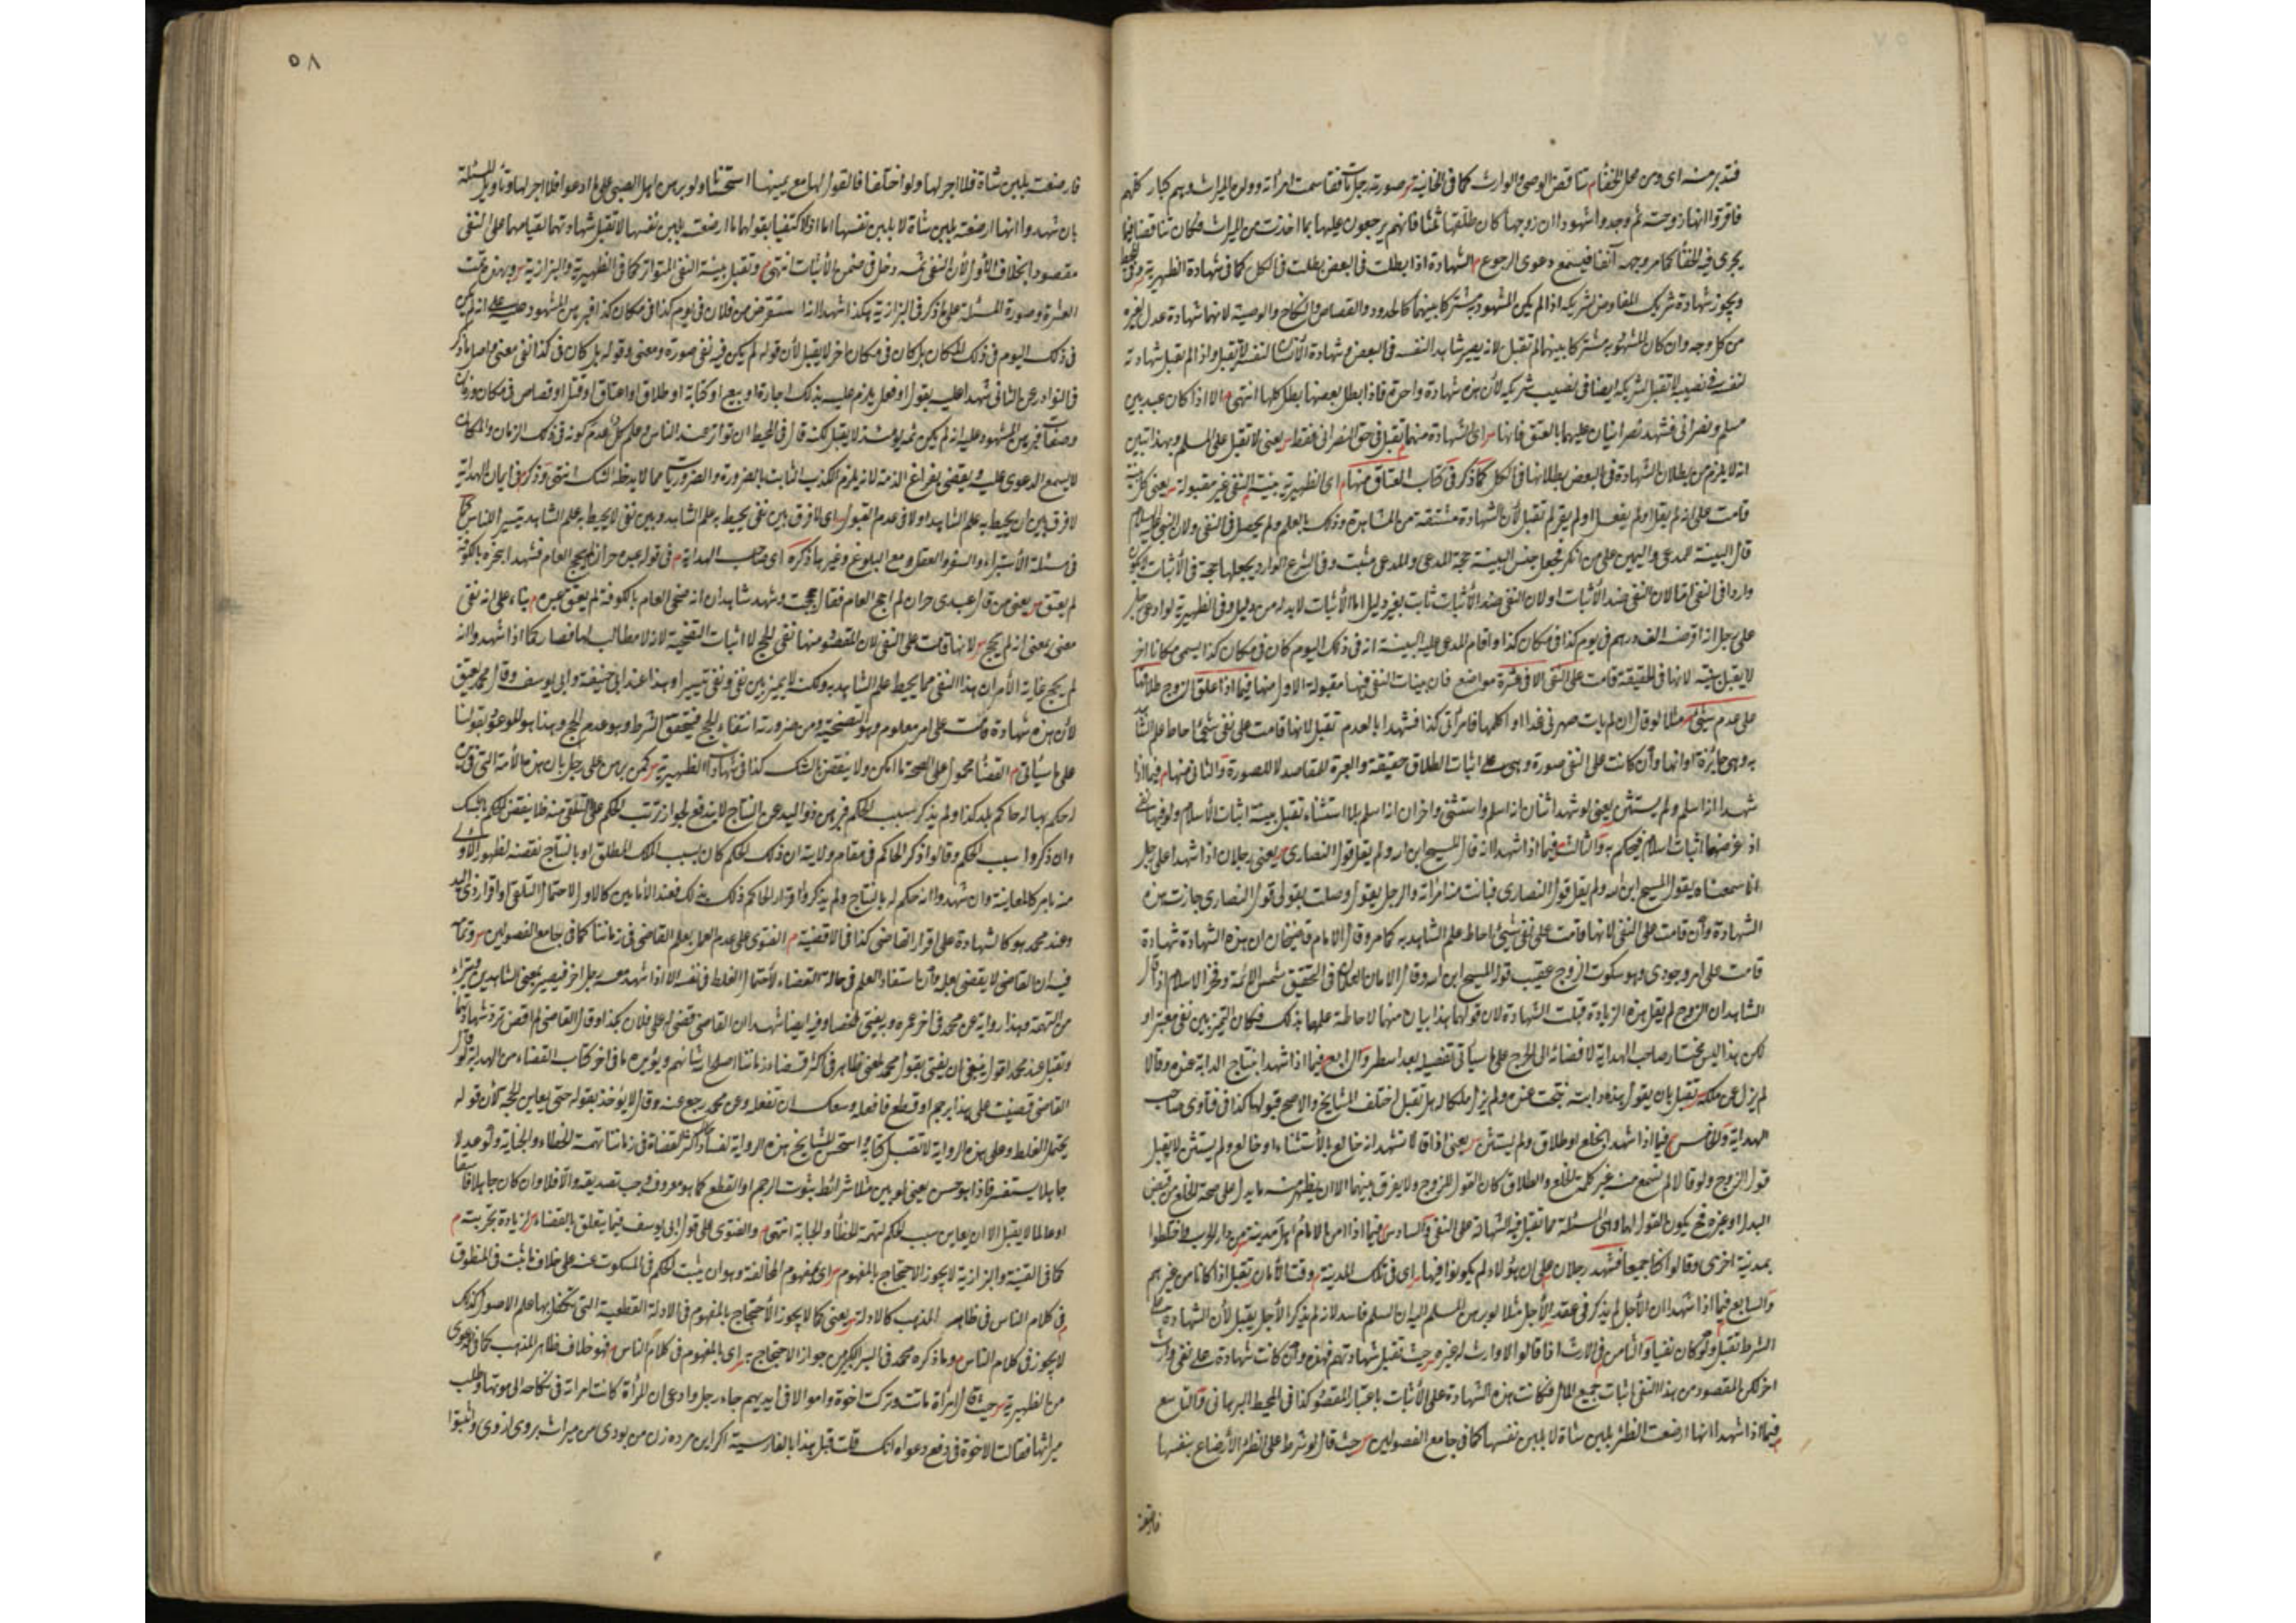 فتدبر منه اى ومن محل الخفاء تناقض الوصى والوارث كما فى الخانية صورته رجل مات فقاسمت امرأته وولده الميراث وهم كبار كلهم
فاقروا انها زوجته ثم وجدوا شهودا ان زوجها كان طلقها ثلثا فانهم يرجعون عليها بما اخذت من الميراث فكان تناقضا فيما
يجرى فيه الخفأ كما مر وجهه آنفا فيسمع دعوى الرجوع م الشهادة اذا بطلت فى البعض بطلت فى الكل كما فى شهادة الظهيرية وفى المحيط
ويجوز شهادة شريك المفاوض لشريكه اذا لم يكن المشهود به مشتركا بينهما كالحدود والقصاص والنكاح والوصية لانها شهادة عدل لغيره
من كل وجه وان كان المشهود به مشتركا بينهما لم تقبل لانه يصير شاهدا لنفسه فى البعض وشهادة الانسان لنفسه لا تقبل واذا لم يقبل شهادته
لنفسه فى نصيبه لا تقبل لشريكه ايضا فى نصيب شريكه لأن هذه شهادة واحدة فاذا بطل بعضها بطل كلها انتهى م الا اذا كان عبد بين
مسلم ونصرانى فشهد نصرانيان عليهما بالعتق فانها اى الشهادة منهما تقبل فى حق النصرانى فقط يعنى لا تقبل على المسلم وبهذا تبين
انه لا يلزم من بطلان الشهادة فى البعض بطلانها فى الكل كما ذكر فى كتاب العتاق منها م اى الظهيرية بينة النفى غير مقبولة يعنى كل بينة
قامت على انه لم يقل او لم يفعل او لم يقر لم تقبل لأن الشهادة مشتقة من المشاهدة وذلك بالعلم ولم يحصل فى النفى ولان النبى عليه السلام
قال البينة للمدعى واليمين على من انكر فجعل جنس البينة حجة المدعى والمدعى مثبت وفى الشرع الوارد بجعلها حجة فى الأثبات لا يكون
واردا فى النفى اما لان النفى ضد الأثبات او لان النفى ضد الأثبات ثابت بغير دليل اما الأثبات لا بد له من دليل وفى الظهيرية لو ادعى رجل
على رجل انه اقرضه الف درهم فى يوم كذا فى مكان كذا واقام المدعى عليه البينة انه فى ذلك اليوم كان فى مكان كذا يسمى مكانا اخر
لا يقبل بينته لانها فى الحقيقة قامت على النفى الا فى عشرة مواضع فان بينات النفى فيها مقبولة الاول منها فيما اذا علق الزوج طلاقها
على عدم شىء مثلا لو قال ان لم يأت صهرتى غدا او اكلمها فامرأتى كذا فشهدا بالعدم تقبل لانها قامت على نفى شىء احاط علم الشاهد
به وهى جائزة او انها وأن كانت على النفى صورة وهى على اثبات الطلاق حقيقة والعبرة للمقاصد لا للصورة والثانى منها م فيما اذا
شهدا انه اسلم ولم يستثن يعنى لو شهد اثنان انه اسلم واستثنى واخران انه اسلم بلا استثناء تقبل بينة اثبات الأسلام ولو فيها نفى
اذ غرضهما اثبات اسلامه فيحكم به والثالث فيما اذا شهدا انه قال المسيح ابن الله ولم يقل قول النصارى يعنى رجلان اذا شهدا على رجل
انا سمعناه يقول المسيح ابن الله ولم يقل قول النصارى فبانت منه امرأته والرجل يقول وصلت بقولى قول النصارى جازت هذه
الشهادة وأن قامت على النفى لانها قامت على نفى شىء احاط علم الشاهد به كما مر وقال الامام قاضيخان ان هذه الشهادة شهادة
قامت على امر وجودى وهو سكوت الزوج عقيب قوله المسيح ابن الله وقال الامامان الكاملان فى التحقيق شمس الائمة وفخر الاسلام اذا قال
الشاهدان الزوج لم يقل هذه الزيادة قبلت الشهادة لان قولهما هذا بيان منهما لاحاطة علمهما بذلك فكان التمييز بين نفى ونفى معتبرا
لكن هذا ليس مختار صاحب الهداية لافضائه الى الحرج على ما سيأتى تفصيله بعد اسطر والرابع فيما اذا شهدا بنتاج الدابة عنده وقالا
لم يزل عن ملكه تقبل بان يقول هذه دابته نتجت عنده ولم يزل ملكا له هل تقبل اختلف المشايخ والاصح قبولها كذا فى فتاوى صاحب
الهداية والخامس فيما اذا شهدا بخلع او طلاق ولم يستثن يعنى اذا قالا نشهد انه خالع بلا استثناء او خالع ولم يستثن لا يقبل
قول الزوج ولو قالا لم نسمع منه غير كلمة الخلع والطلاق كان القول للزوج ولا يفرق بينهما الا ان يظهر منه ما يدل على صحة الخلع من قبض
البدل او غيره فح يكون القول لها وهى المسئلة مما تقبل فيه الشهادة على النفى والسادس فيما اذا امن الامام اهل مدينة من دار الحرب فاختلطوا
بمدينة اخرى وقالوا كنا جميعا فشهد رجلان على ان هؤلاء لم يكونوا فيها اى فى تلك المدينة وقت الأمان تقبل اذا كانا من غيرهم
والسابع فيما اذا شهدا ان الأجل لم يذكر فى عقد الأجل مثلا لو برهن المسلم اليه ان السلم فاسد لانه لم يذكر الأجل يقبل لأن الشهادة على
الشرط تقبل ولو كان نفيا والثامن فى الارث اذا قالوا لا وارث له غيره حيث تقبل شهادتهم فهذه وأن كانت شهادة على نفى وارث
اخر لكن المقصود من هذا النفى اثبات جميع المال فكانت هذه الشهادة على الأثبات باعتبار المقصود كذا فى المحيط البرهانى والتاسع
فيما اذا شهدا انها ارضعت الظئر بلبن شاة لا بلبن نفسها كما فى جامع الفصولين حيث قال لو شرط على الظئر الأرضاع بنفسها
فارضعت
٥٨
فارضعت بلبن شاة فلا اجر لها ولو اختلفا فالقول لها مع يمينها استحسانا ولو برهن اهل الصبى على ما ادعوا فلا اجر لها وتأويل المسئلة
بان شهدوا انها ارضعته بلبن شاة لا بلبن نفسها اما اذا اكتفيا بقولهما ما ارضعته بلبن نفسها لا تقبل شهادتهما لقيامها على النفى
مقصودا بخلاف الأول لأن النفى ثمه دخل فى ضمن الأثبات انتهى وتقبل بينة النفى المتواتر كما فى الظهيرية والبزازية وبهذه تمت
العشرة وصورة المسئلة على ما ذكر فى البزازية هكذا شهدا انه استقرض من فلان فى يوم كذا فى مكان كذا فبرهن المشهود عليه على انه لم يكن
فى ذلك اليوم فى ذلك المكان بل كان فى مكان اخر لا يقبل لأن قوله لم يكن فيه نفى صورة ومعنى وقوله بل كان فى كذا نفى معنى اصله ما ذكر
فى النوادر عن الثانى شهدا عليه بقول او فعل يلزم عليه بذلك اجارة او بيع او كتابة او طلاق او عتاق او قتل او قصاص فى مكان وزمان
وصفاه فبرهن المشهود عليه انه لم يكن ثمه يومئذ لا يقبل لكنه قال فى المحيط ان تواتر عند الناس وعلم كل عدم كونه فى ذلك الزمان والمكان
لا يسمع الدعوى عليه ويقضى بفراغ الذمة لانه يلزم تكذيب الثابت بالضرورة والضروريات مما لا يدخله الشك انتهى وذكر فى ايمان الهداية
لا فرق بين ان يحيط به علم الشاهد او لا فى عدم القبول اى لا فرق بين نفى يحيط به علم الشاهد وبين نفى لا يحيط به علم الشاهد تيسيرا للناس كما
فى مسئلة الأستبراء والسفر والعقل مع البلوغ وغيرها ذكره اى صاحب الهداية م فى قوله عبده حر ان لم يحج العام فشهدا بنحره بالكوفة
لم يعتق يعنى من قال عبدى حر ان لم احج العام فقال حججت وشهد شاهدان انه ضحى العام بالكوفة لم يعتق عبده م بناء على انه نفى
معنى بمعنى انه لم يحج لانها قامت على النفى لان المقصود منها نفى الحج لا اثبات التضحية لانه لا مطالب لها فصار كما اذا شهدوا انه
لم يحج غاية الأمر ان هذا النفى مما يحيط علم الشاهد به ولكنه لا يميز بين نفى ونفى تيسيرا وهذا عند ابى حنيفة وابى يوسف وقال محمد يعتق
لأن هذه شهادة قامت على امر معلوم وهو التضحية ومن ضرورته انتفاء الحج فيتحقق الشرط وهو عدم الحج وهذا هو الموعود بقولنا
على ما سيأتى م القضاء محمول على الصحة ما امكن ولا ينقض بالشك كذا فى شهادات الظهيرية كمن برهن على رجل بان هذه الأمة التى فى يده
له حكم بها له حاكم بلد كذا ولم يذكر سبب الحكم فبرهن ذو اليد عن النتاج لا يندفع لجواز ترتب الحكم على التلقى منه فلا ينقض الحكم بالشك
وان ذكروا سبب الحكم وقالوا ذكر الحاكم فى مقام ولايته ان ذلك الحكم كان بسبب الملك المطلق او بالنتاج نقضه لظهور الأولى
منه بامر كالمعاينة وان شهدوا انه حكم له بالنتاج ولم يذكروا اقرار الحاكم ذلك بذلك فعند الأمامين كالاول لاحتمال التلقى واقرار ذى اليد
وعند محمد هو كالشهادة على اقرار القاضى كذا فى الاقضية م الفتوى على عدم العمل بعلم القاضى فى زماننا كما فى جامع الفصولين وتمامه
فيه ان القاضى لا يقضى بعلمه وأن استفاد العلم فى حالة القضاء لأحتمال الغلط فى نفسه الا اذا شهد معه رجل اخر فيصير بمعنى الشاهدين ويتبرأ
من التهمة وهذا رواية عن محمد فى اخر عمره وبه يفتى ملخصا وفيه ايضا شهدا ان القاضى قضى له على فلان بكذا وقال القاضى لم اقض ترد شهادتهما
وتقبل عند محمد اقول ينبغى ان يفتى بقول محمد لمعنى ظاهر فى اكثر قضاة زماننا اصلح الله شأنهم ويؤيده ما فى اخر كتاب القضاء من الهداية لو قال
القاضى قضيت على هذا برجم او قطع فافعله وسعك ان تفعله وعن محمد رجع عنه وقال لا يؤخذ بقوله حتى يعاين الحجة لأن قوله
يحتمل الغلط وعلى هذه الرواية لا تقبل كتابه واستحسن المشايخ هذه الرواية لفساد اكثر القضاة فى زماننا تهمة الخطاء والخيانة ولو عدلا
جاهلا يستفسر فاذا هو حسن يعنى لو بين مثلا شرائط ثبوت الرجم او القطع كما هو معروف وجب تصديقه والا فلا وان كان جاهلا فاسقا
او عالما لا يقبل الا ان يعاين سبب الحكم لتهمة الخطأ والخيانة انتهى م والفتوى على قول ابى يوسف فيما يتعلق بالقضاء لزيادة تجربته م
كما فى القنية والبزازية لا يجوز الاحتجاج بالمفهوم اى بمفهوم المخالفة وهو ان يثبت الحكم فى المسكوت عنه على خلاف ما ثبت فى المنطوق
فى كلام الناس فى ظاهر المذهب كالادلة يعنى كما لا يجوز الأحتجاج بالمفهوم فى الادلة القطعية التى تكفل بها علم الاصول كذلك
لا يجوز فى كلام الناس م وما ذكره محمد فى السير الكبير من جواز الاحتجاج به اى بالمفهوم فى كلام الناس فهو خلاف ظاهر المذهب كما فى الدعوى
من الظهيرية حيث قال امرأة ماتت وتركت اخوة واموالا فى ايديهم جاء رجل وادعى ان المرأة كانت امرأته فى نكاحه الى موتها وطلب
ميراثها فقالت الاخوة فى دفع دعواه انك قلت قبل هذا بالفارسية اكر اين مرده زن من بودى من ميراث بردمى ازوى واثبتوا